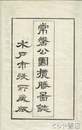 常磐公園攬勝圖誌
水戸市緑町蔵版